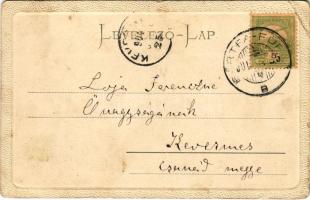 LEVELEZŐ-LAP
Lója Ferenczné
Úrnagyságának
Kevermes
Csanád megye